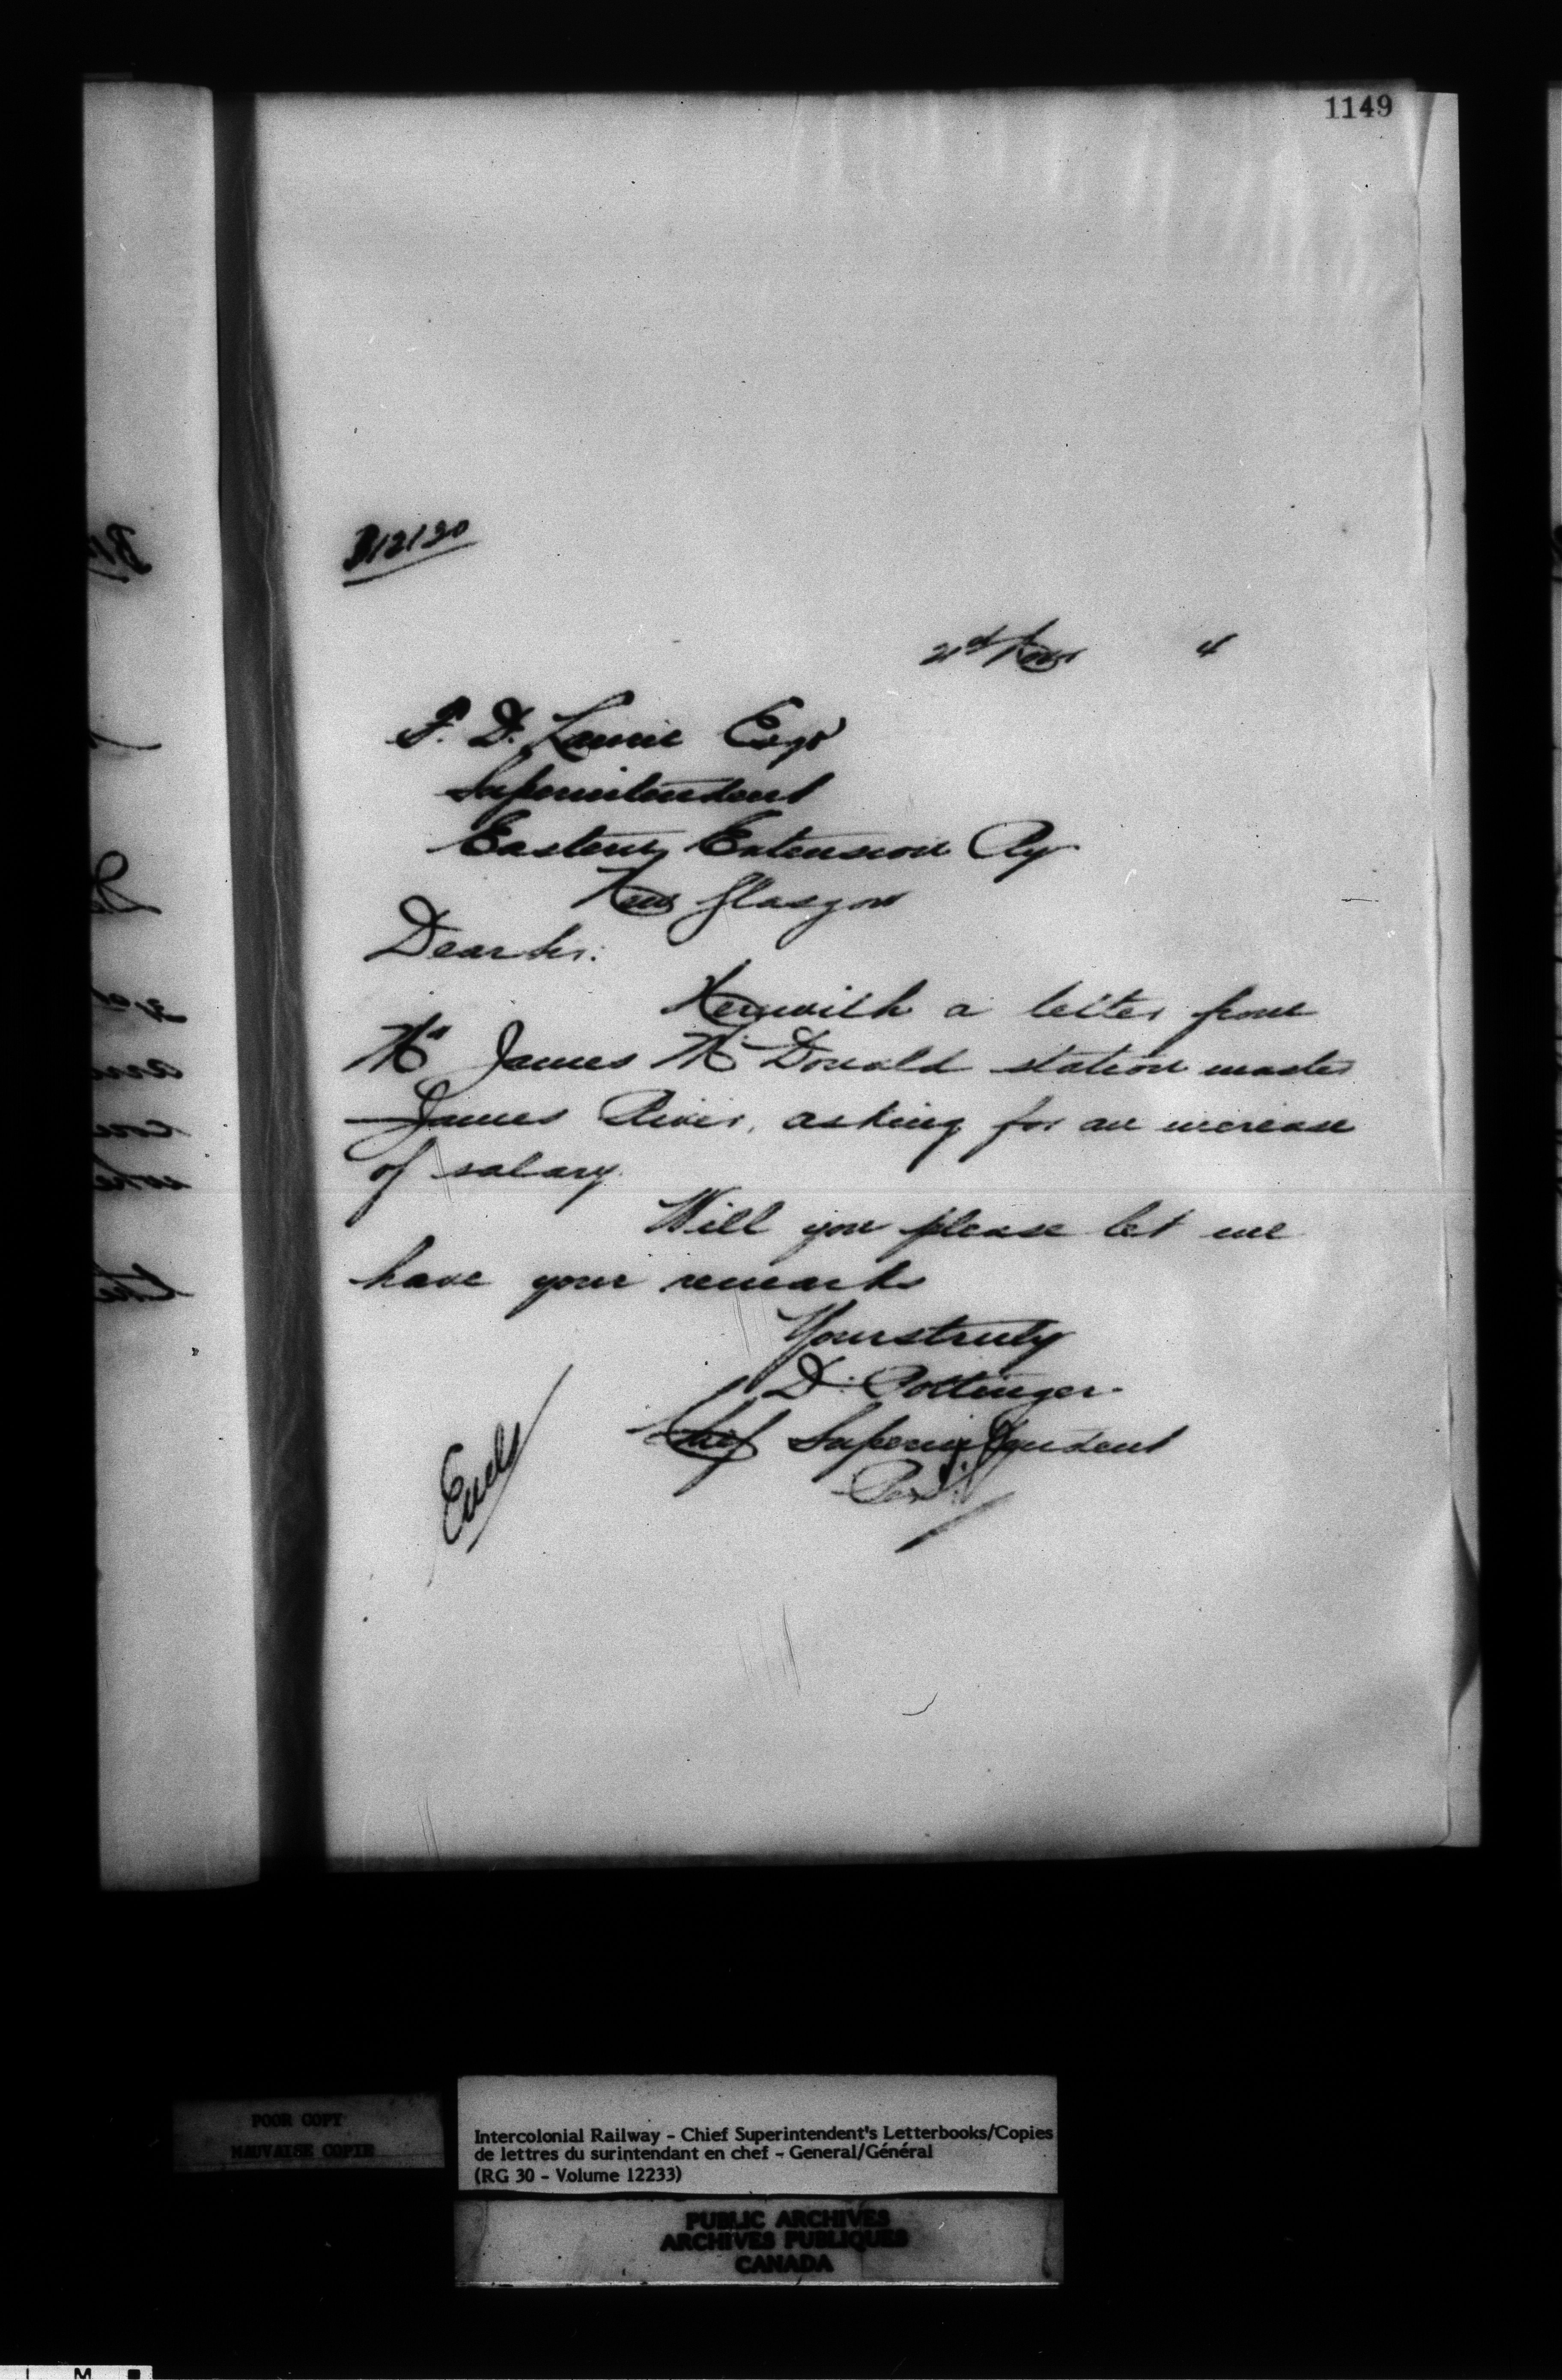 1149
B12130
21st Novr 4
P. D. Laurie Esqr
Superintendent
Eastern Extension Ry
New Glasgow
Dear Sir:
Herewith a letter from
Mr James McDonald station master
James River, asking for an increase
of salary.
Will you please let me
have your remarks
Yours truly
D. Pottinger.
Chief Superintendent
Per
Encls
POOR COPY
MAUVAISE COPIE
Intercolonial Railway - Chief Superintendent's Letterbooks/Copies
de lettres du surintendant en chef - General/Général
(RG 30 - Volume 12233)
PUBLIC ARCHIVES
ARCHIVES PUBLIQUES
CANADA